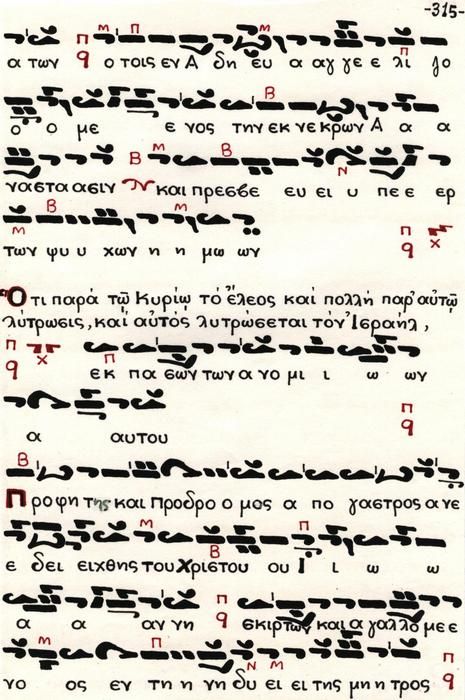 -315-
α των ο τοις εν Α δη ευ α αγ γε ε λι ζο
ο ο με ε νος την εκ νε κρων Α α α
ναστα ασιν και πρεσβε ευ ει υ πε ε ερ
των ψυ υ χων η η μω ων
Ὅτι παρὰ τῷ Κυρίῳ τὸ ἔλεος καὶ πολλὴ παρ' αὐτῷ
λύτρωσις, καὶ αὐτὸς λυτρώσεται τὸν Ἰσραήλ,
εκ πα σων των α νο μι ι ω ων
α αυτου
Προφη της και Προδρο ο μος α πο γαστρος α νε
ε δει ειχθης του Χριστου ου Ι ι ω ω
α α αν νη σκιρτων και α γαλλο με ε
νο ος εν τη η γη δυ ει ει της μη η τρος